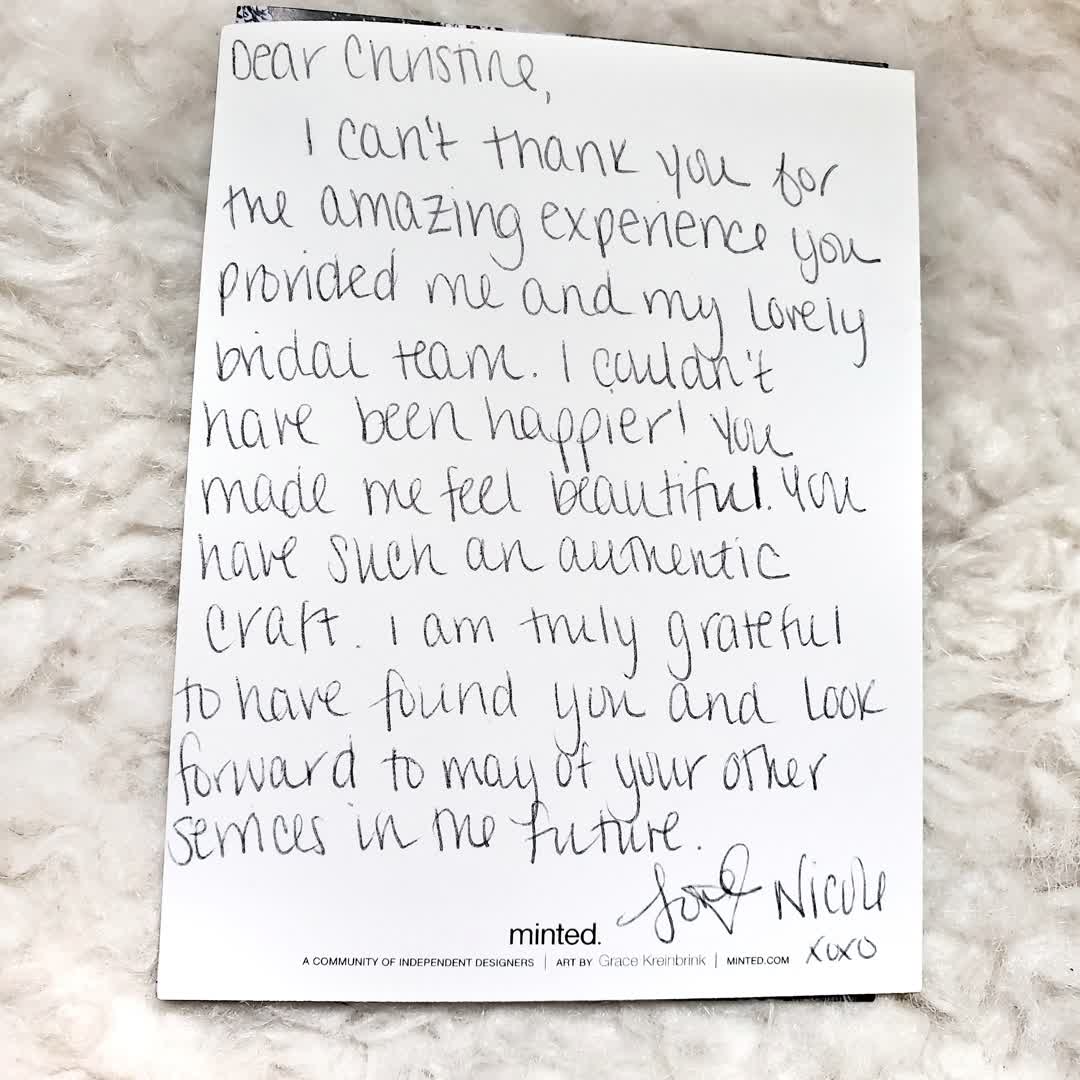 Dear Christine,
I can't thank you for
the amazing experience you
provided me and my lovely
bridal team. I couldn't
have been happier! You
made me feel beautiful. You
have such an authentic
craft. I am truly grateful
to have found you and look
forward to may of your other
services in the future.
Love Nicole
xoxo
minted.
A COMMUNITY OF INDEPENDENT DESIGNERS | ART BY Grace Kreinbrink | MINTED.COM